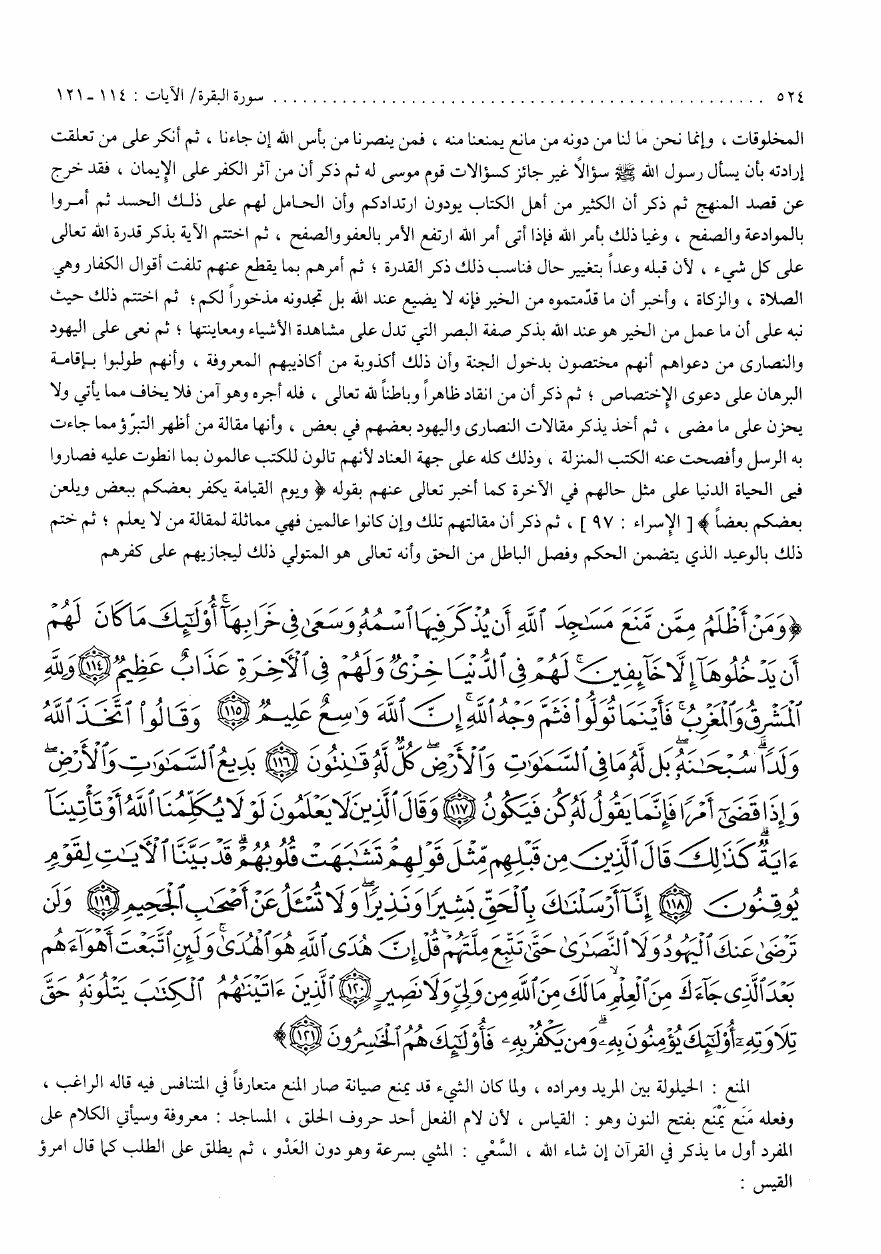 ٥٢٤ .................................................... سورة البقرة/ الآيات : ١١٤ ـ ١٢١
المخلوقات ، وإنما نحن ما لنا من دونه من مانع يمنعنا منه ، فمن ينصرنا من بأس الله إن جاءنا ، ثم أنكر على من تعلقت
إرادته بأن يسأل رسول الله ﷺ سؤالاً غير جائز كسؤالات قوم موسى له ثم ذكر أن من آثر الكفر على الإيمان ، فقد خرج
عن قصد المنهج ثم ذكر أن الكثير من أهل الكتاب يودون ارتدادكم وأن الحـامل لهم على ذلـك الحسد ثم أمـروا
بالموادعة والصفح ، وغيا ذلك بأمر الله فإذا أتى أمر الله ارتفع الأمر بالعفو والصفح ، ثم اختتم الآية بذكر قدرة الله تعالى
على كل شيء ، لأن قبله وعداً بتغيير حال فناسب ذلك ذكر القدرة ؛ ثم أمرهم بما يقطع عنهم تلفت أقوال الكفار وهي
الصلاة ، والزكاة ، وأخبر أن ما قدّمتموه من الخير فإنه لا يضيع عند الله بل تجدونه مذخوراً لكم؛ ثم اختتم ذلك حيث
نبه على أن ما عمل من الخير هو عند الله بذكر صفة البصر التي تدل على مشاهدة الأشياء ومعاينتها ؛ ثم نعى على اليهود
والنصارى من دعواهم أنهم مختصون بدخول الجنة وأن ذلك أكذوبة من أكاذيبهم المعروفة ، وأنهم طولبوا بـإقامـة
البرهان على دعوى الإختصاص ؛ ثم ذكر أن من انقاد ظاهراً وباطناً لله تعالى ، فله أجره وهو آمن فلا يخاف مما يأتي ولا
يحزن على ما مضى ، ثم أخذ يذكر مقالات النصارى واليهود بعضهم في بعض ، وأنها مقالة من أظهر التبرّؤ مما جاءت
به الرسل وأفصحت عنه الكتب المنزلة ، وذلك كله على جهة العناد لأنهم تالون للكتب عالمون بما انطوت عليه فصاروا
في الحياة الدنيا على مثل حالهم في الآخرة كما أخبر تعالى عنهم بقوله ﴿ ويوم القيامة يكفر بعضكم ببعض ويلعن
بعضكم بعضاً ﴾ [ الإسراء : ٩٧ ] ، ثم ذكر أن مقالتهم تلك وإن كانوا عالمين فهي مماثلة لمقالة من لا يعلم ؛ ثم ختم
ذلك بالوعيد الذي يتضمن الحكم وفصل الباطل من الحق وأنه تعالى هو المتولي ذلك ليجازيهم على كفرهم
﴿وَمَنْ أَظْلَمُ مِمَّن مَّنَعَ مَسَـٰجِدَ ٱللَّهِ أَن يُذْكَرَ فِيهَا ٱسْمُهُۥ وَسَعَىٰ فِى خَرَابِهَآ ۚ أُو۟لَـٰٓئِكَ مَا كَانَ لَهُمْ
أَن يَدْخُلُوهَآ إِلَّا خَآئِفِينَ ۚ لَهُمْ فِى ٱلدُّنْيَا خِزْىٌ وَلَهُمْ فِى ٱلْـَٔاخِرَةِ عَذَابٌ عَظِيمٌ ﴿١١٤﴾ وَلِلَّهِ
ٱلْمَشْرِقُ وَٱلْمَغْرِبُ ۚ فَأَيْنَمَا تُوَلُّوا۟ فَثَمَّ وَجْهُ ٱللَّهِ ۚ إِنَّ ٱللَّهَ وَٰسِعٌ عَلِيمٌ ﴿١١٥﴾ وَقَالُوا۟ ٱتَّخَذَ ٱللَّهُ
وَلَدًا ۗ سُبْحَـٰنَهُۥ ۖ بَل لَّهُۥ مَا فِى ٱلسَّمَـٰوَٰتِ وَٱلْأَرْضِ ۖ كُلٌّ لَّهُۥ قَـٰنِتُونَ ﴿١١٦﴾ بَدِيعُ ٱلسَّمَـٰوَٰتِ وَٱلْأَرْضِ ۖ
وَإِذَا قَضَىٰٓ أَمْرًا فَإِنَّمَا يَقُولُ لَهُۥ كُن فَيَكُونُ ﴿١١٧﴾ وَقَالَ ٱلَّذِينَ لَا يَعْلَمُونَ لَوْلَا يُكَلِّمُنَا ٱللَّهُ أَوْ تَأْتِينَآ
ءَايَةٌ ۗ كَذَٰلِكَ قَالَ ٱلَّذِينَ مِن قَبْلِهِم مِّثْلَ قَوْلِهِمْ ۘ تَشَـٰبَهَتْ قُلُوبُهُمْ ۗ قَدْ بَيَّنَّا ٱلْـَٔايَـٰتِ لِقَوْمٍ
يُوقِنُونَ ﴿١١٨﴾ إِنَّآ أَرْسَلْنَـٰكَ بِٱلْحَقِّ بَشِيرًا وَنَذِيرًا ۖ وَلَا تُسْـَٔلُ عَنْ أَصْحَـٰبِ ٱلْجَحِيمِ ﴿١١٩﴾ وَلَن
تَرْضَىٰ عَنكَ ٱلْيَهُودُ وَلَا ٱلنَّصَـٰرَىٰ حَتَّىٰ تَتَّبِعَ مِلَّتَهُمْ ۗ قُلْ إِنَّ هُدَى ٱللَّهِ هُوَ ٱلْهُدَىٰ ۗ وَلَئِنِ ٱتَّبَعْتَ أَهْوَآءَهُم
بَعْدَ ٱلَّذِى جَآءَكَ مِنَ ٱلْعِلْمِ ۙ مَا لَكَ مِنَ ٱللَّهِ مِن وَلِىٍّ وَلَا نَصِيرٍ ﴿١٢٠﴾ ٱلَّذِينَ ءَاتَيْنَـٰهُمُ ٱلْكِتَـٰبَ يَتْلُونَهُۥ حَقَّ
تِلَاوَتِهِۦٓ أُو۟لَـٰٓئِكَ يُؤْمِنُونَ بِهِۦ ۗ وَمَن يَكْفُرْ بِهِۦ فَأُو۟لَـٰٓئِكَ هُمُ ٱلْخَـٰسِرُونَ ﴿١٢١﴾﴾
المنع : الحيلولة بين المريد ومراده ، ولما كان الشيء قد يمنع صيانة صار المنع متعارفاً في المتنافس فيه قاله الراغب ،
وفعله مَنَع يَمْنَع بفتح النون وهو : القياس ، لأن لام الفعل أحد حروف الحلق ، المساجد : معروفة وسيأتي الكلام على
المفرد أول ما يذكر في القرآن إن شاء الله ، السَّعْي : المشي بسرعة وهو دون العَدْو ، ثم يطلق على الطلب كما قال امرؤ
القيس :